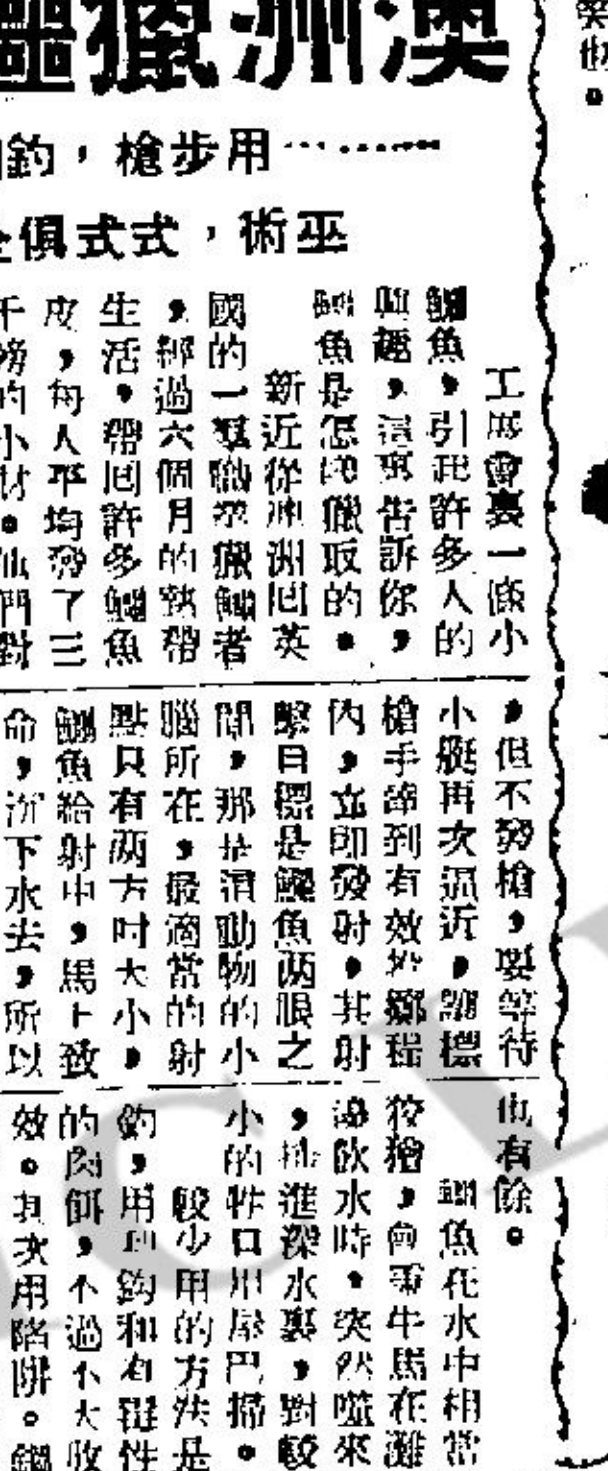 澳洲獵鱷
用步槍，釣
巫術，式式俱全
工展會裏一條小
鱷魚，引起許多人的
興趣，這裏告訴你，
鱷魚是怎樣獵取的。
新近從澳洲囘英
國的一羣職業獵鱷者
，經過六個月的熱帶
生活，帶囘許多鱷魚
皮，每人平均發了三
千鎊的小財。他們對
，但不發槍，要等待
小艇再次逼近，讓標
槍手達到有效的擲程
內，立即發射，其射
擊目標是鱷魚两眼之
間，那是這動物的小
腦所在，最適當的射
點只有两方吋大小，
鱷魚給射中，馬上致
命，沉下水去，所以
也有餘。
鱷魚在水中相當
狡猾，會乘牛馬在灘
邊飲水時，突然噬來
，拖進深水裏，對較
小的牲口用尾巴掃。
較少用的方法是
釣，用到鈎和有韌性
的肉餌，不過不大收
效。其次用陷阱。